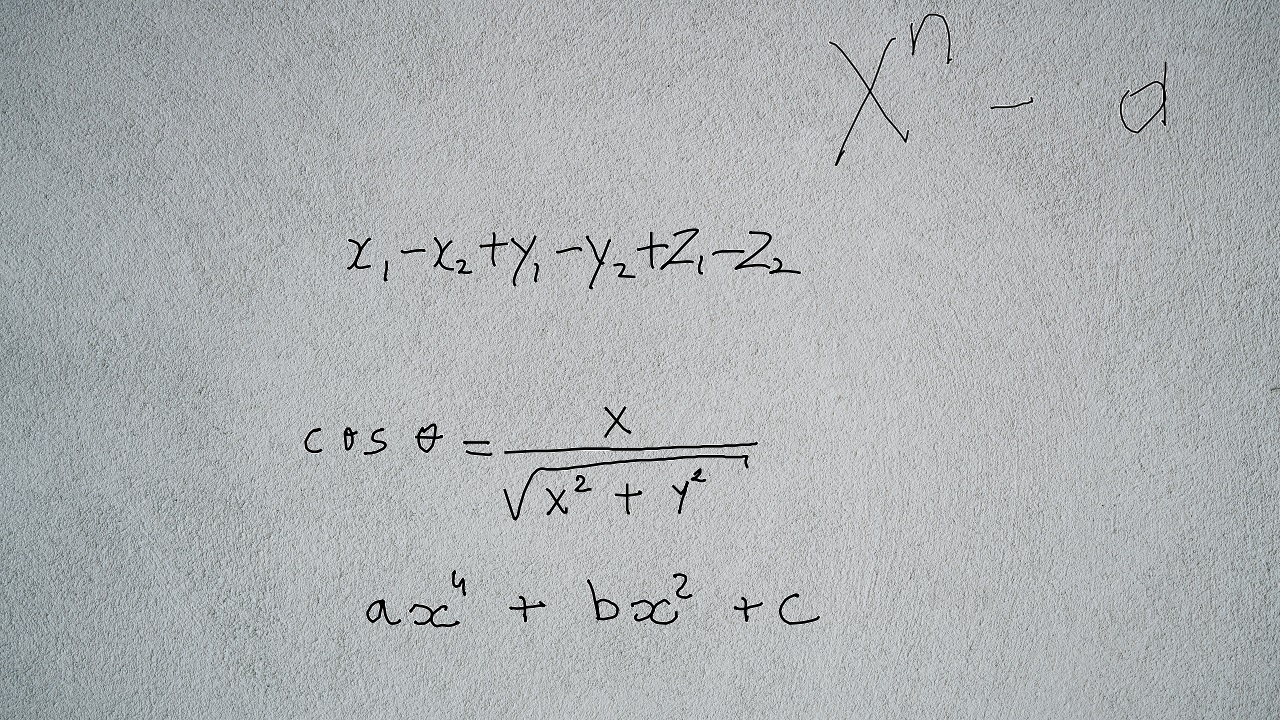 Xⁿ - a
x₁-x₂+y₁-y₂+z₁-z₂
cos θ = x / √(x² + y²)
ax⁴ + bx² + c